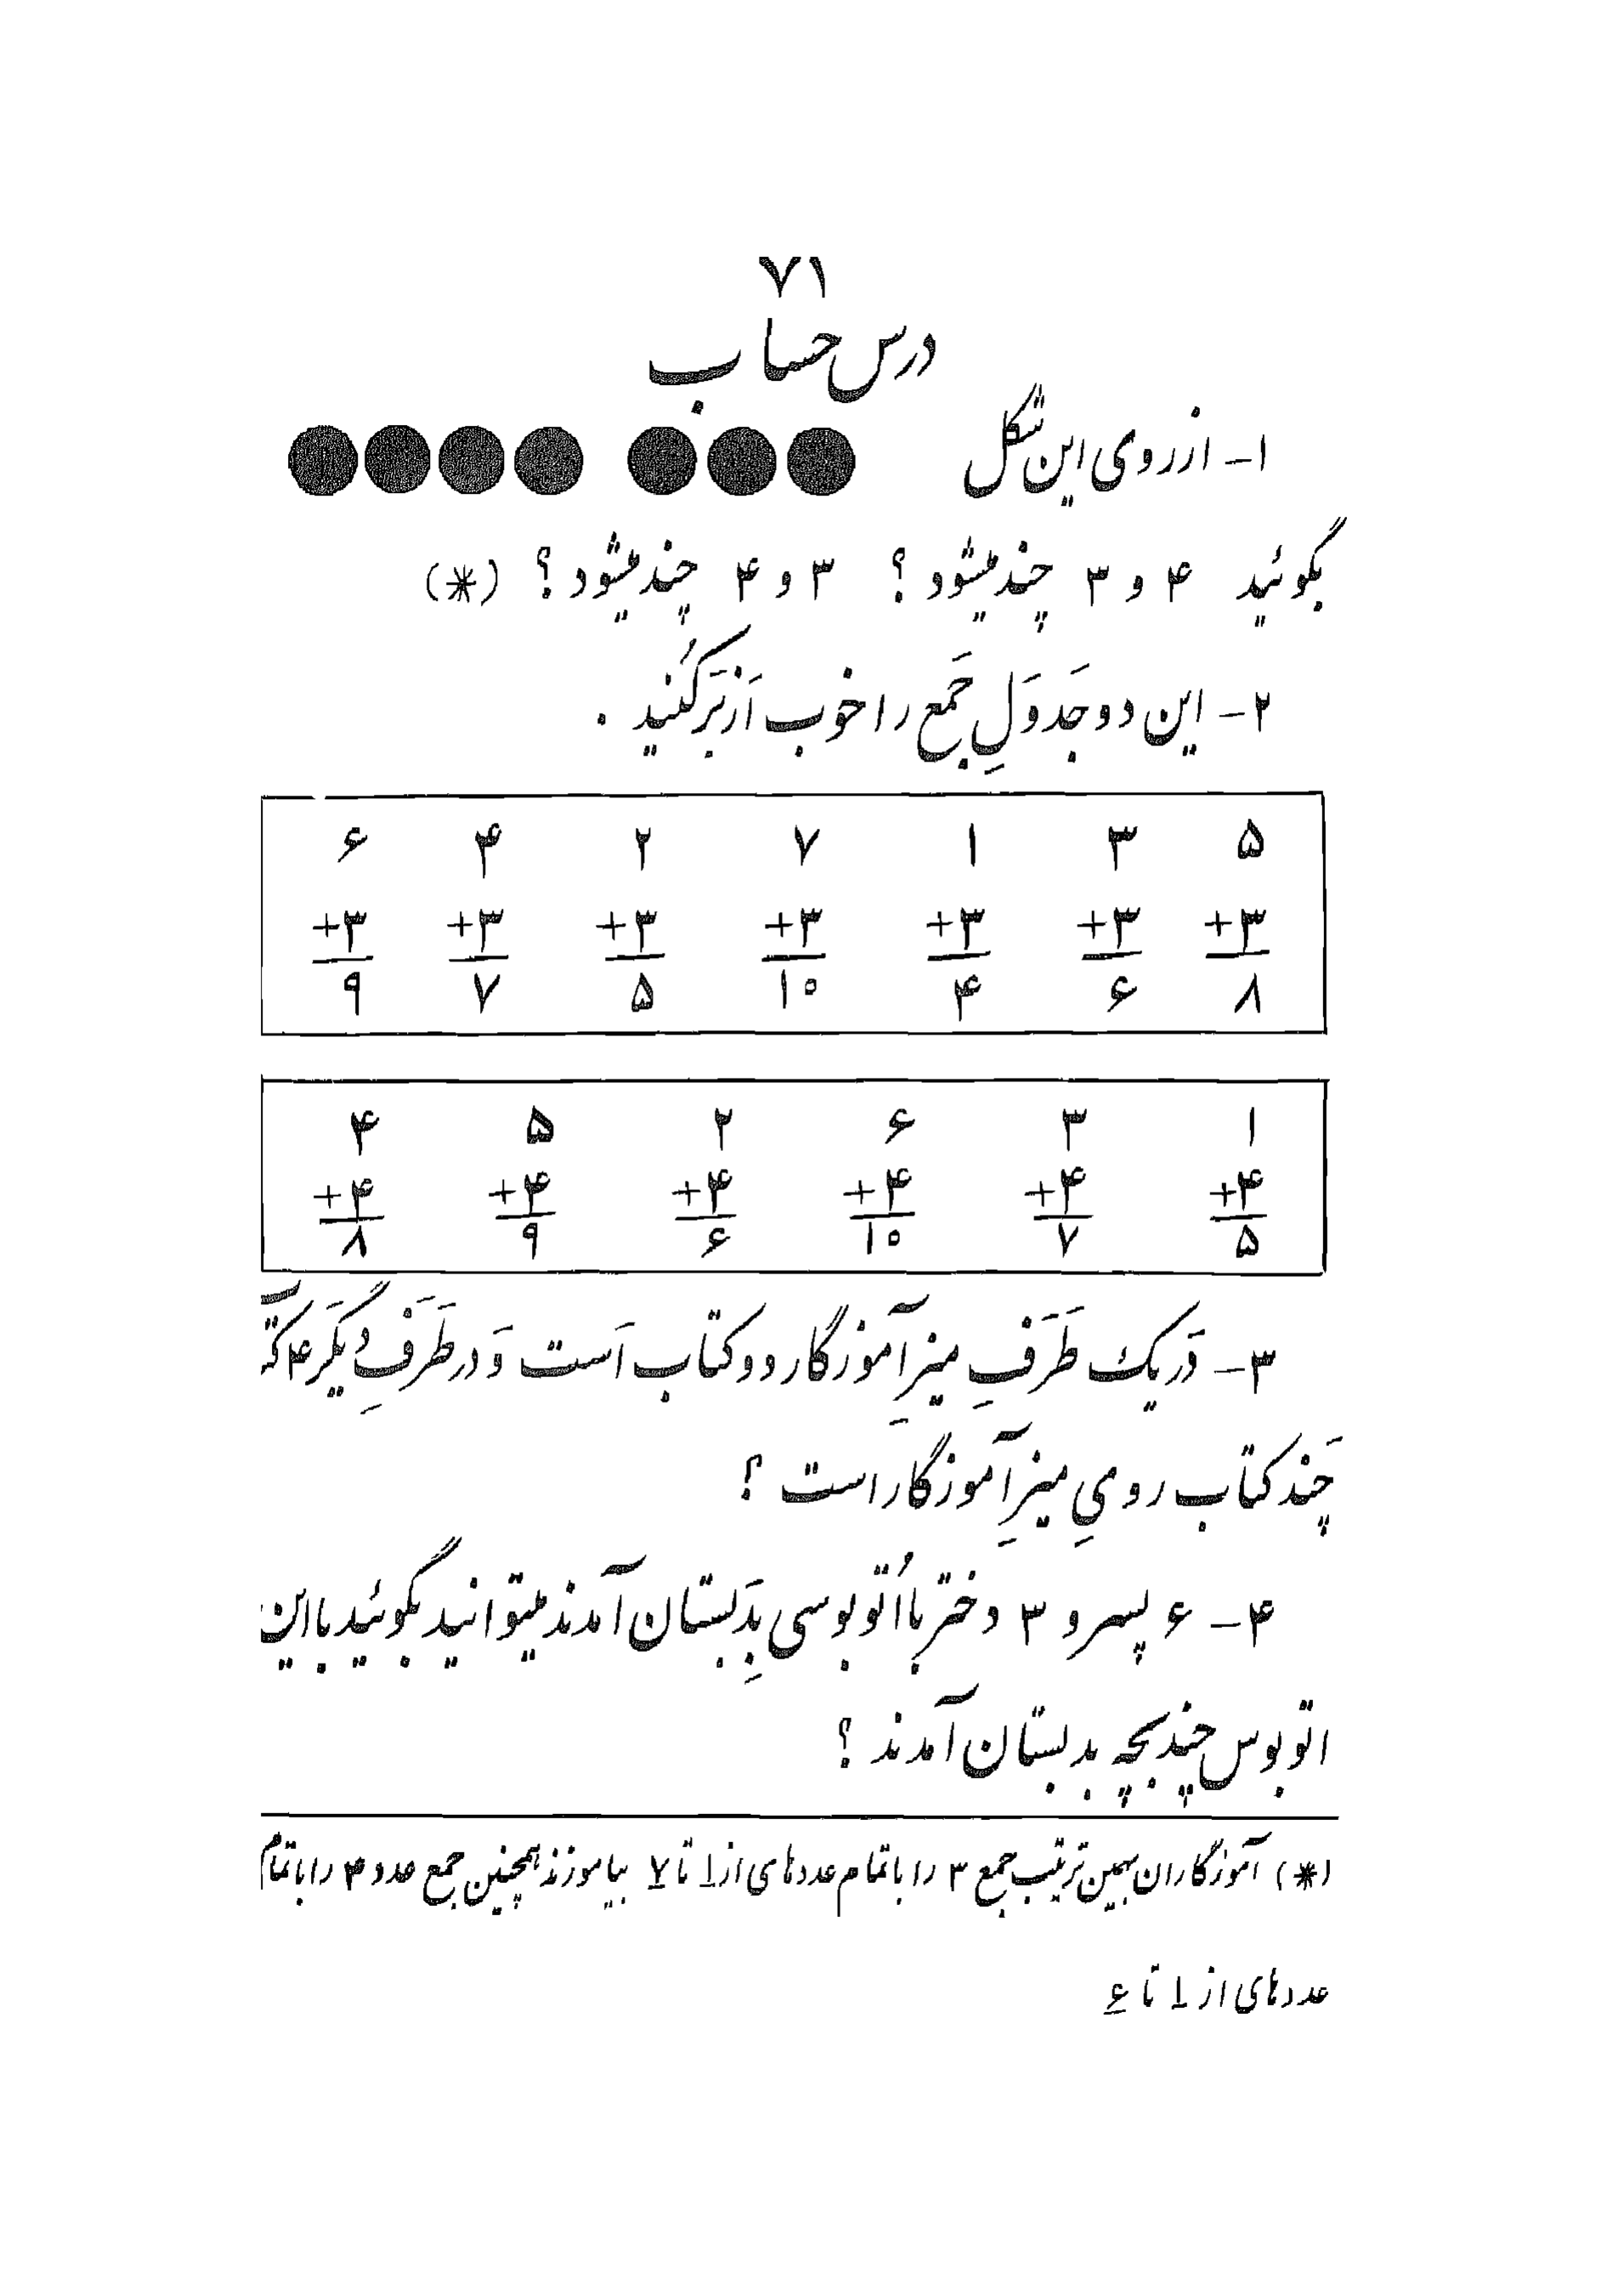 ۷۱
درس حساب
۱- از روی این شکل
بگوئید ۴ و ۳ چند میشود؟ ۳ و ۴ چند میشود؟ (*)
۲- این دو جَدوَلِ جَمع را خوب اَز بَر کُنید .
۵ ۳ ۱ ۷ ۲ ۴ ۶
+۳ +۳ +۳ +۳ +۳ +۳ +۳
۸ ۶ ۴ ۱۰ ۵ ۷ ۹
۱ ۳ ۶ ۲ ۵ ۴
+۴ +۴ +۴ +۴ +۴ +۴
۵ ۷ ۱۰ ۶ ۹ ۸
۳- دَر یک طَرَفِ میزِ آموزگار دو کتاب اَست وَ در طَرَفِ دیگَر ۴ کتاب
چَند کتاب رویِ میزِ آموزگار است ؟
۴- ۶ پسر و ۳ دختر با اُتوبوسی بِدَبستان آمدند میتوانید بگوئید با این
اتوبوس چند بچه بدبستان آمدند ؟
(*) آموزگاران بهمین ترتیب جمع ۳ را با تمام عددهای از ۱ تا ۷ بیاموزند همچنین جمع عدد ۴ را با تمام
عددهای از ۱ تا ۶